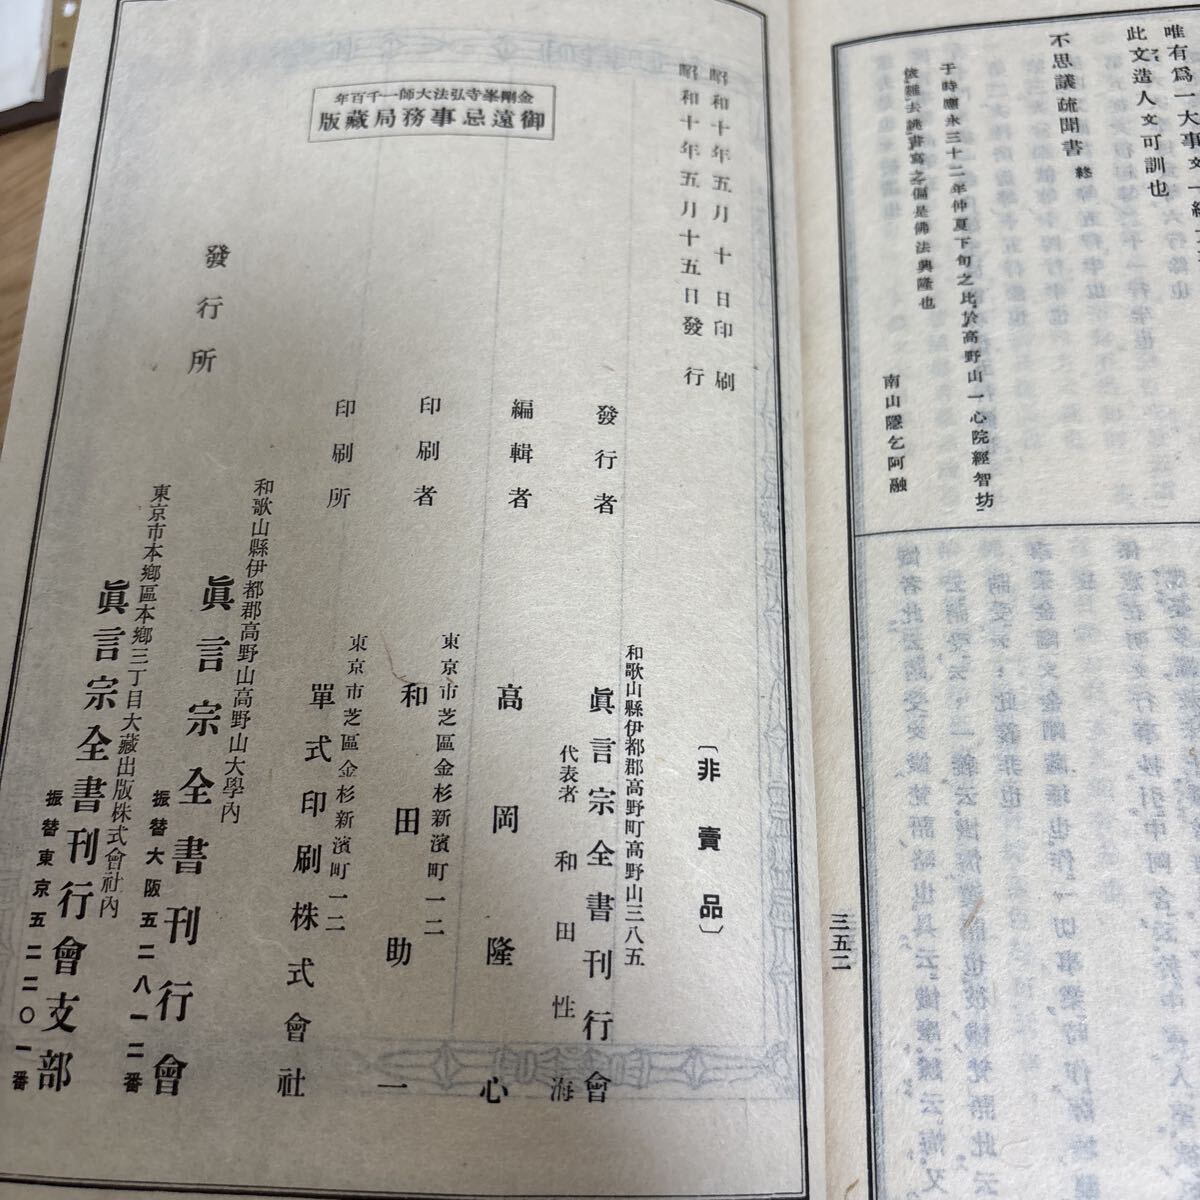 唯有爲一大事
此文造人文可訓也
不思議疏聞書 終
于時應永三十二年仲夏下旬之比、於高野山一心院經智坊
南山隱乞阿融
三五二
昭和十年五月十日印刷
昭和十年五月十五日發行
金剛峯寺弘法大師一千百年
御遠忌事務局藏版
〔非賣品〕
和歌山縣伊都郡高野町高野山三八五
發行者 眞言宗全書刊行會
代表者 和田性海
編輯者 高岡隆心
東京市芝區金杉新濱町一二
印刷者 和田助一
東京市芝區金杉新濱町一二
印刷所 單式印刷株式會社
發行所
和歌山縣伊都郡高野山高野山大學內
眞言宗全書刊行會
振替大阪五二八一二番
東京市本鄕區本鄕三丁目大藏出版株式會社內
眞言宗全書刊行會支部
振替東京五二二〇一番